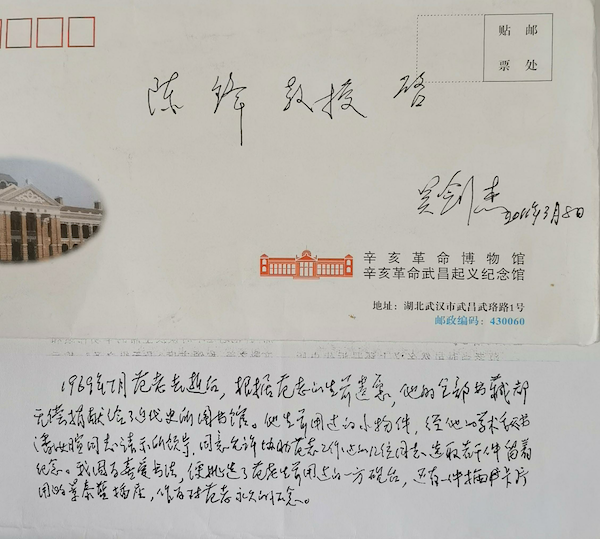 贴 邮
票 处
陈锋教授 启
吴剑杰 2011年3月8日
辛亥革命博物馆
辛亥革命武昌起义纪念馆
地址：湖北武汉市武昌武珞路1号
邮政编码：430060
1969年7月范老去逝后，根据范老的生前遗愿，他的全部书藏都
无偿捐献给了近代史所图书馆。他生前用过的小物件，经他的学术秘书
同志请示所领导，同意允许协助范老工作过的几位同志选取若干件留着
纪念。我因为喜爱书法，便挑选了范老生前用过的一方砚台，还有一件插卡片
用的景泰蓝插座，作为对范老永久的纪念。